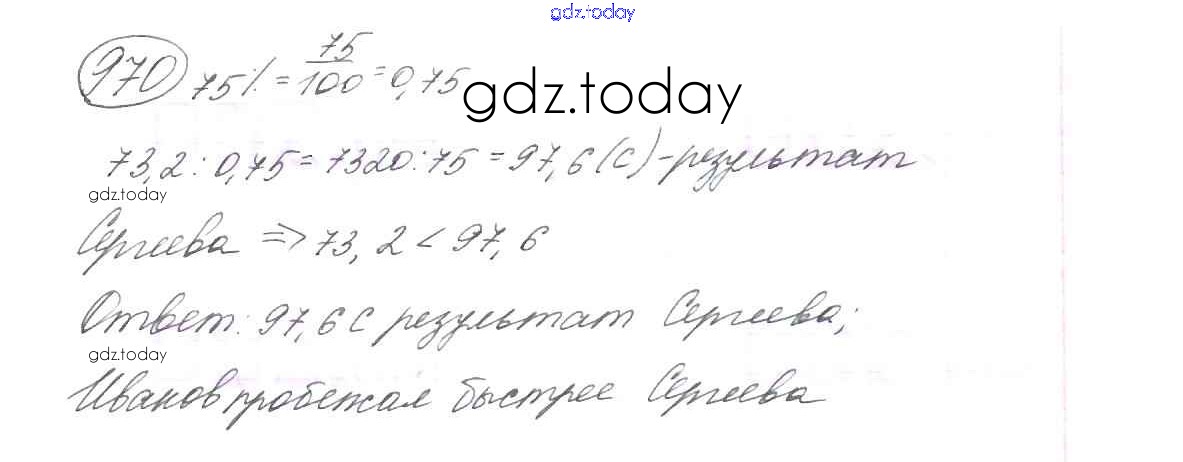 gdz.today
970 75% = 75/100 = 0,75
gdz.today
73,2 : 0,75 = 7320 : 75 = 97,6 (с) - результат
gdz.today
Сергеева => 73,2 < 97,6
Ответ: 97,6 с результат Сергеева;
gdz.today
Иванов пробежал быстрее Сергеева